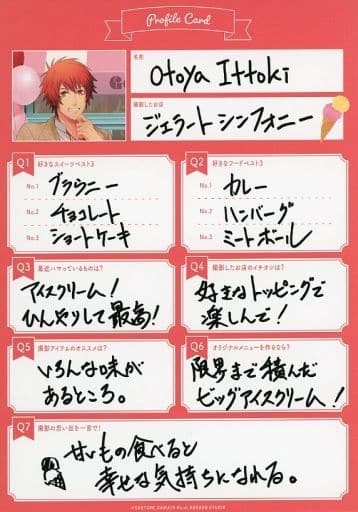 Profile Card
名前
Otoya Ittoki
撮影したお店
ジェラート シンフォニー
Q1 好きなスイーツベスト3
No.1 ブラウニー
No.2 チョコレート
No.3 ショートケーキ
Q2 好きなフードベスト3
No.1 カレー
No.2 ハンバーグ
No.3 ミートボール
Q3 最近ハマっているものは?
アイスクリーム!
ひんやりして最高!
Q4 撮影したお店のイチオシは?
好きなトッピングで
楽しんで!
Q5 撮影アイテムのオススメは?
いろんな味が
あるところ。
Q6 オリジナルメニューを作るなら?
限界まで積んだ
ビッグアイスクリーム!
Q7 撮影の思い出を一言で!
甘いもの食べると
幸せな気持ちになれる。